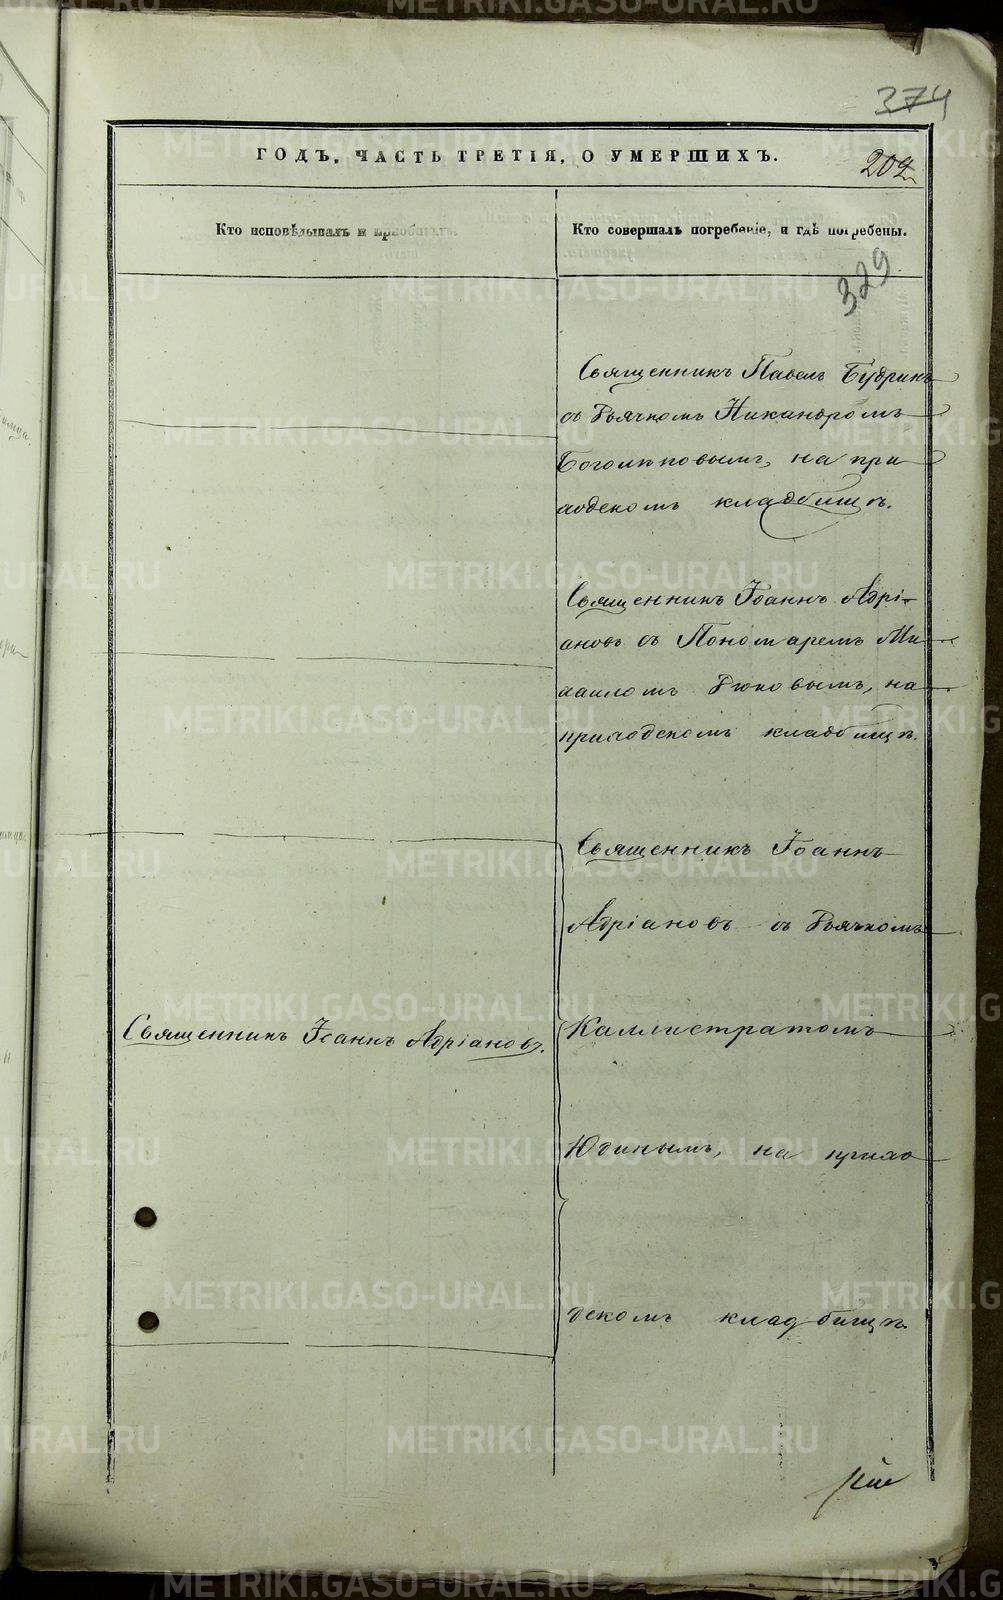 374
ГОДЪ, ЧАСТЬ ТРЕТІЯ, О УМЕРШИХЪ.
202
Кто исповѣдывалъ и пріобщалъ.
Кто совершалъ погребеніе, и гдѣ погребены.
329
Священникъ Павелъ Будринъ
съ Дьячкомъ Никаноромъ
Боголѣповымъ, на при
ходскомъ кладбищѣ.
Священникъ Іоаннъ Адрі-
ановъ съ Пономаремъ Ми
хаиломъ на
приходскомъ кладбищѣ.
Священникъ Іоаннъ
Адріановъ съ Дьячкомъ
Священникъ Іоаннъ Адріановъ.
Каллистратомъ
Юдинымъ, на прихо
дскомъ кладбищѣ.
METRIKI.GASO-URAL.RU